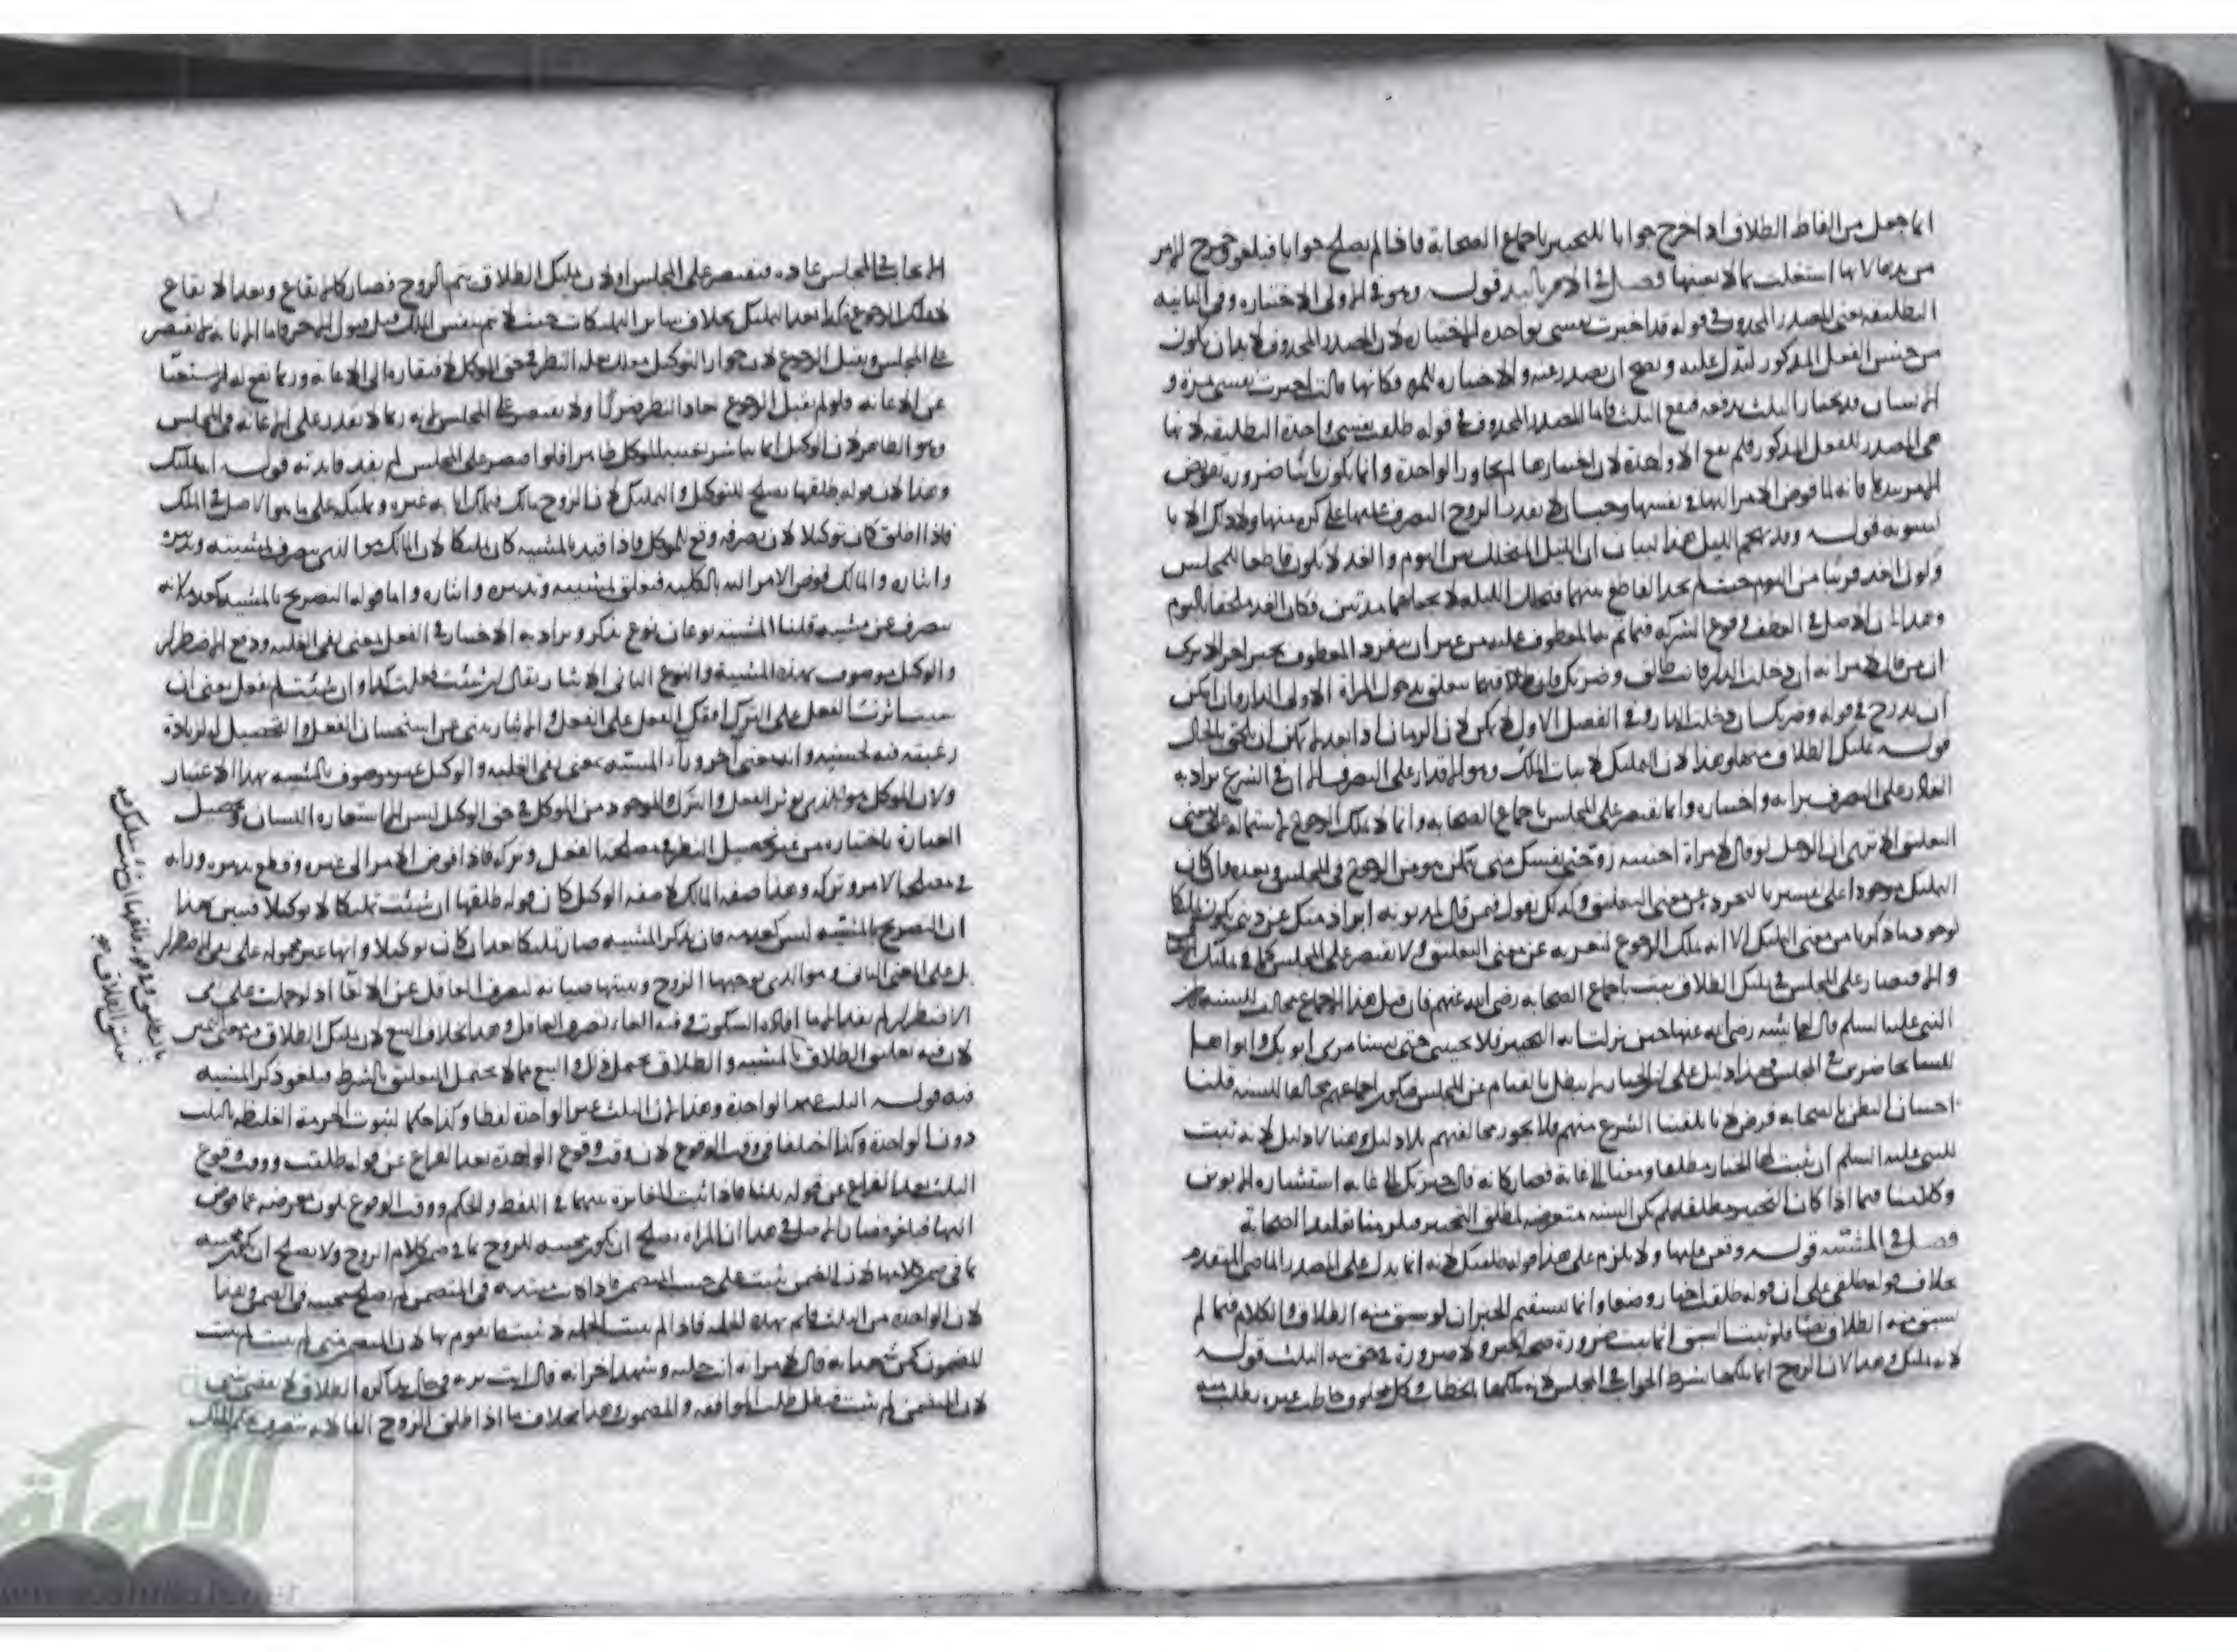 انما جعل من الفاظ الطلاق اذا خرج جوابا للتخيير باجماع الصحابة فاذا لم يصلح جوابا فيلغو خرج الامر
من يدها لانها اشتغلت بما لا يعنيها فصل في الامر باليد قوله وهو في الاولى الاختياره وفي الثانية
التطليقة يعني المصدر المحذوف في قوله قد اخترت نفسي بواحدة الاختياره لان المصدر المحذوف لابد ان يكون
من جنس الفعل المذكور ليدل عليه ويصح ان يصدر عنه والاختياره للمرة فكانها قالت اخترت نفسي مرة و
الانسان قد يختار الثلث بدفعة فيقع الثلث فاما المصدر المحذوف في قوله طلقت نفسي واحدة التطليقة لانها
هي المصدر للفعل المذكور فلم يقع الا واحدة لان اختيارها لم يجاوز الواحدة وانما يكون باينا ضرورة تفويض
الامر بيدها فانه لما فوض الامر اليها في نفسها وجب ان لا يقدر الزوج التصرف عليها على كره منها وذلك الا با
لبينونة قوله وقد يهجم الليل هذا لبيان ان الليل المتخلل بين اليوم والغد لا يكون قاطعا للمجلس
ولون الغد قريبا من اليوم حيث لم يجد الفاصل بينهما فتخلل الليلة لا يجعلهما مدتين فكان الغد ملحقا باليوم
وهذا لان الاصل في العطف وقوع الشركة فيما تم بها المعطوف عليه من غير ان يفرد المعطوف بخبر اخر الا ترى
ان من قال لامراته ان دخلت الدار فانت طالق وضرتك فان طلاقهما متعلق بدخول المراة الاولى الدار وان امكن
ان يدرج في قوله وضرتك ان دخلت الدار وفي الفصل الاول لا يمكن لان الزمان اذا بعد لم يمكن ان يلتحق بالحال
قوله تمليك الطلاق منها وهذا لان التمليك لاثبات الملك وهو الاقدار على التصرف الا ان في الشرع يراد به
القادر على التصرف برايه واختياره وانما يقتصر على المجلس باجماع الصحابة وانما لا يملك الرجوع لاشتماله على معنى
التعليق الا ترى ان الرجل لو قال لامراة اجنبية زوجني نفسك مني يتمكن هو من الرجوع في المجلس وبعده وان كان
التمليك موجودا على تفسيره بالتجرد عن معنى التعليق وكذلك نقول فيمن قال لمديونه ابراء ذمتك عن ديني يكون تمليكا
لوجود ما ذكرنا من معنى التمليك الا انه يملك الرجوع لتعريه عن معنى التعليق ولا يقتصر على المجلس كما في تمليك
والاقتصار على المجلس في تمليك الطلاق يثبت باجماع الصحابة رضي الله عنهم فان قيل هذا الاجماع مخالف للسنة فان
النبي عليه السلام قال لعايشة رضي الله عنها حين نزلت اية التخيير فلا تجيبني حتى تستامري ابويك وابواها
ليسا بحاضرين في المجلس وهذا دليل على ان الخيار لا يبطل بالقيام عن المجلس فيكون اجماعهم مخالفا للسنة قلنا
احسان الظن بالصحابة فرض لانا تلقفنا الشرع منهم فلا يجوز مخالفتهم بلا دليل وهنا لا دليل لانه ثبت
للنبي عليه السلام ان يثبت لها الخيار مطلقا ومغيا الى غاية فصار كانه قال خيرتك الى غاية استشارة الابوين
وكلامنا فيما اذا كان التخيير مطلقا فلم يكن السنة متعرضة لمطلق التخيير فلزمنا تقليد الصحابة
فصل في المشية قوله وقعن عليها ولا يلزم على هذا قوله طلقتك لانه انما يدل على المصدر الماضي المتقدم
بخلاف قوله طلقي على ان قوله طلقت اخبار وضعا وانما يستقيم الخبر ان لو سبق منه الطلاق والكلام فيما لم
يسبق منه الطلاق نصا فلو ثبت السبق انما يثبت ضرورة صحة الخبر ولا ضرورة في حق نية الثلث قوله
لانه تمليك وهذا لان الزوج انما يملكها بشرط الجواب في المجلس لانه يملكها بالخطاب وكل مخلوق خاطب غيره يطلب منه
الجواب في المجلس عادة فيقتصر على المجلس اولان تمليك الطلاق يتم بالزوج فصار كالايقاع وبعد الايقاع
لا يملك الرجوع فكذا بعد التمليك بخلاف سائر التمليكات حيث لا يتم بنفس المملك قبل قبول الاخر فاما الانابة لا تقتصر
على المجلس ويقبل الرجوع لان جواز التوكيل مولد عليه النظر في حق الموكل لافتقاره الى الاعانة وربما يقع له الاستغناء
عن الاعانة فلو لم يقبل الرجوع عاد النظر ضررا ولا يقتصر على المجلس لانه ربما لا يقدر على الاعانة في المجلس
وهو الظاهر لان الوكيل انما يباشر بغيبة الموكل ظاهرا فلو اقتصر على المجلس لم يفد فايدته قوله انه تمليك
وهذا لان قوله طلقها يصلح للتوكيل والتمليك لان الزوج مالك فيملك انابة غيره وتمليكه على ما هو الاصل في الملك
فاذا اطلق كان توكيلا لان تصرفه وقع للموكل فاذا قيد بالمشية كان تمليكا لان المالك هو الذي يتصرف بمشيته وتدبيره
وايثاره والمالك فوض الامر اليه بالكلية فيعلق بمشيته وتدبيره وايثاره واما قوله التصريح بالمشية كعدمه لانه
يتصرف عن مشية قلنا المشية نوعان نوع يذكر ويراد به الاختيار في الفعل يعني نفي الغلبة ودفع الاضطرار
والوكيل موصوف بهذه المشية والنوع الثاني الايثار يقال ان شئت فعلت كذا وان شئت لم افعل يعني ان
شئت اثرت الفعل على الترك او ترك الفعل على الفعل والايثار ينبئ عن استحسان الفعل والتحصيل له لزيادة
رغبته فيه لحسنه وانه معنى اخر وراء المشية بمعنى نفي الغلبة والوكيل غير موصوف بالمشية بهذا الاعتبار
ولان الموكل هو الذي يؤثر الفعل والترك والموجود من الموكل في حق الوكيل ليس الا استعارة اللسان وتحصيل
العبارة باختياره من غير تحصيل النظر في مصلحة الفعل وتركه فاذا فوض الامر الى غيره وقطع تدبيره ورايه
في مصلحة الامر وتركه وهذا صفة المالك لا صفة الوكيل كان قوله طلقها ان شئت تمليكا لا توكيلا فتبين بهذا
ان التصريح بالمشية ليس كعدمه فان بذكر المشية صار تمليكا بعد ان كان توكيلا وانها غير محمولة على نفي الاضطرار
بل على المعنى الثاني وهو الذي يوجبها الزوج ويثبتها صيانة لتصرف العاقل عن الالغاء اذ لو حملت على نفي
الاضطرار لم يفد الا ما افاده السكوت وفيه الغاء تصرف العاقل وهذا بخلاف البيع لان تمليك الطلاق في معنى اليمين
لان فيه تعليق الطلاق بالمشية والطلاق يحتمل ذلك والبيع مما لا يحتمل التعليق بالشرط فيلغو ذكر المشية
فيه قوله الثلث غير الواحدة وهذا لان الثلث غير الواحدة لفظا وكذا حكما لثبوت الحرمة الغليظة بالثلث
دون الواحدة وكذا اختلفا في وقت الوقوع لان وقت وقوع الواحدة بعد الفراغ عن قوله طلقت ووقت وقوع
الثلث بعد الفراغ عن قوله ثلثا فاذا ثبت المغايرة بينهما في اللفظ والحكم ووقت الوقوع يكون معرضة عما فوض
اليها فيلغو فصار الاصل في هذا ان المراة يصلح ان تكون مجيبة للزوج بما في ضمن كلام الزوج ولا يصلح ان تكون مجيبة
بما في ضمن كلامها لان الضمن يثبت على حسب المتضمن فاذا كانت مبتدئة في المتضمن لم يصلح مجيبة في الضمن وهذا
لان الواحدة من الثلث قائمة بهذه الجملة فاذا لم يثبت الجملة لا يثبت ما يقوم بها لان المتضمن متى لم يثبت لم يثبت
المضمون كمن شهد انه قال لامراته انت خلية وشهد اخر انه قال انت برية في حال مذاكرة الطلاق لا يقضي بشي
لان المتضمن لم يثبت فبطل طلب الموافقة والمضمون وهذا بخلاف ما اذا طلق الزوج الفا لانه يتصرف بحكم الملك